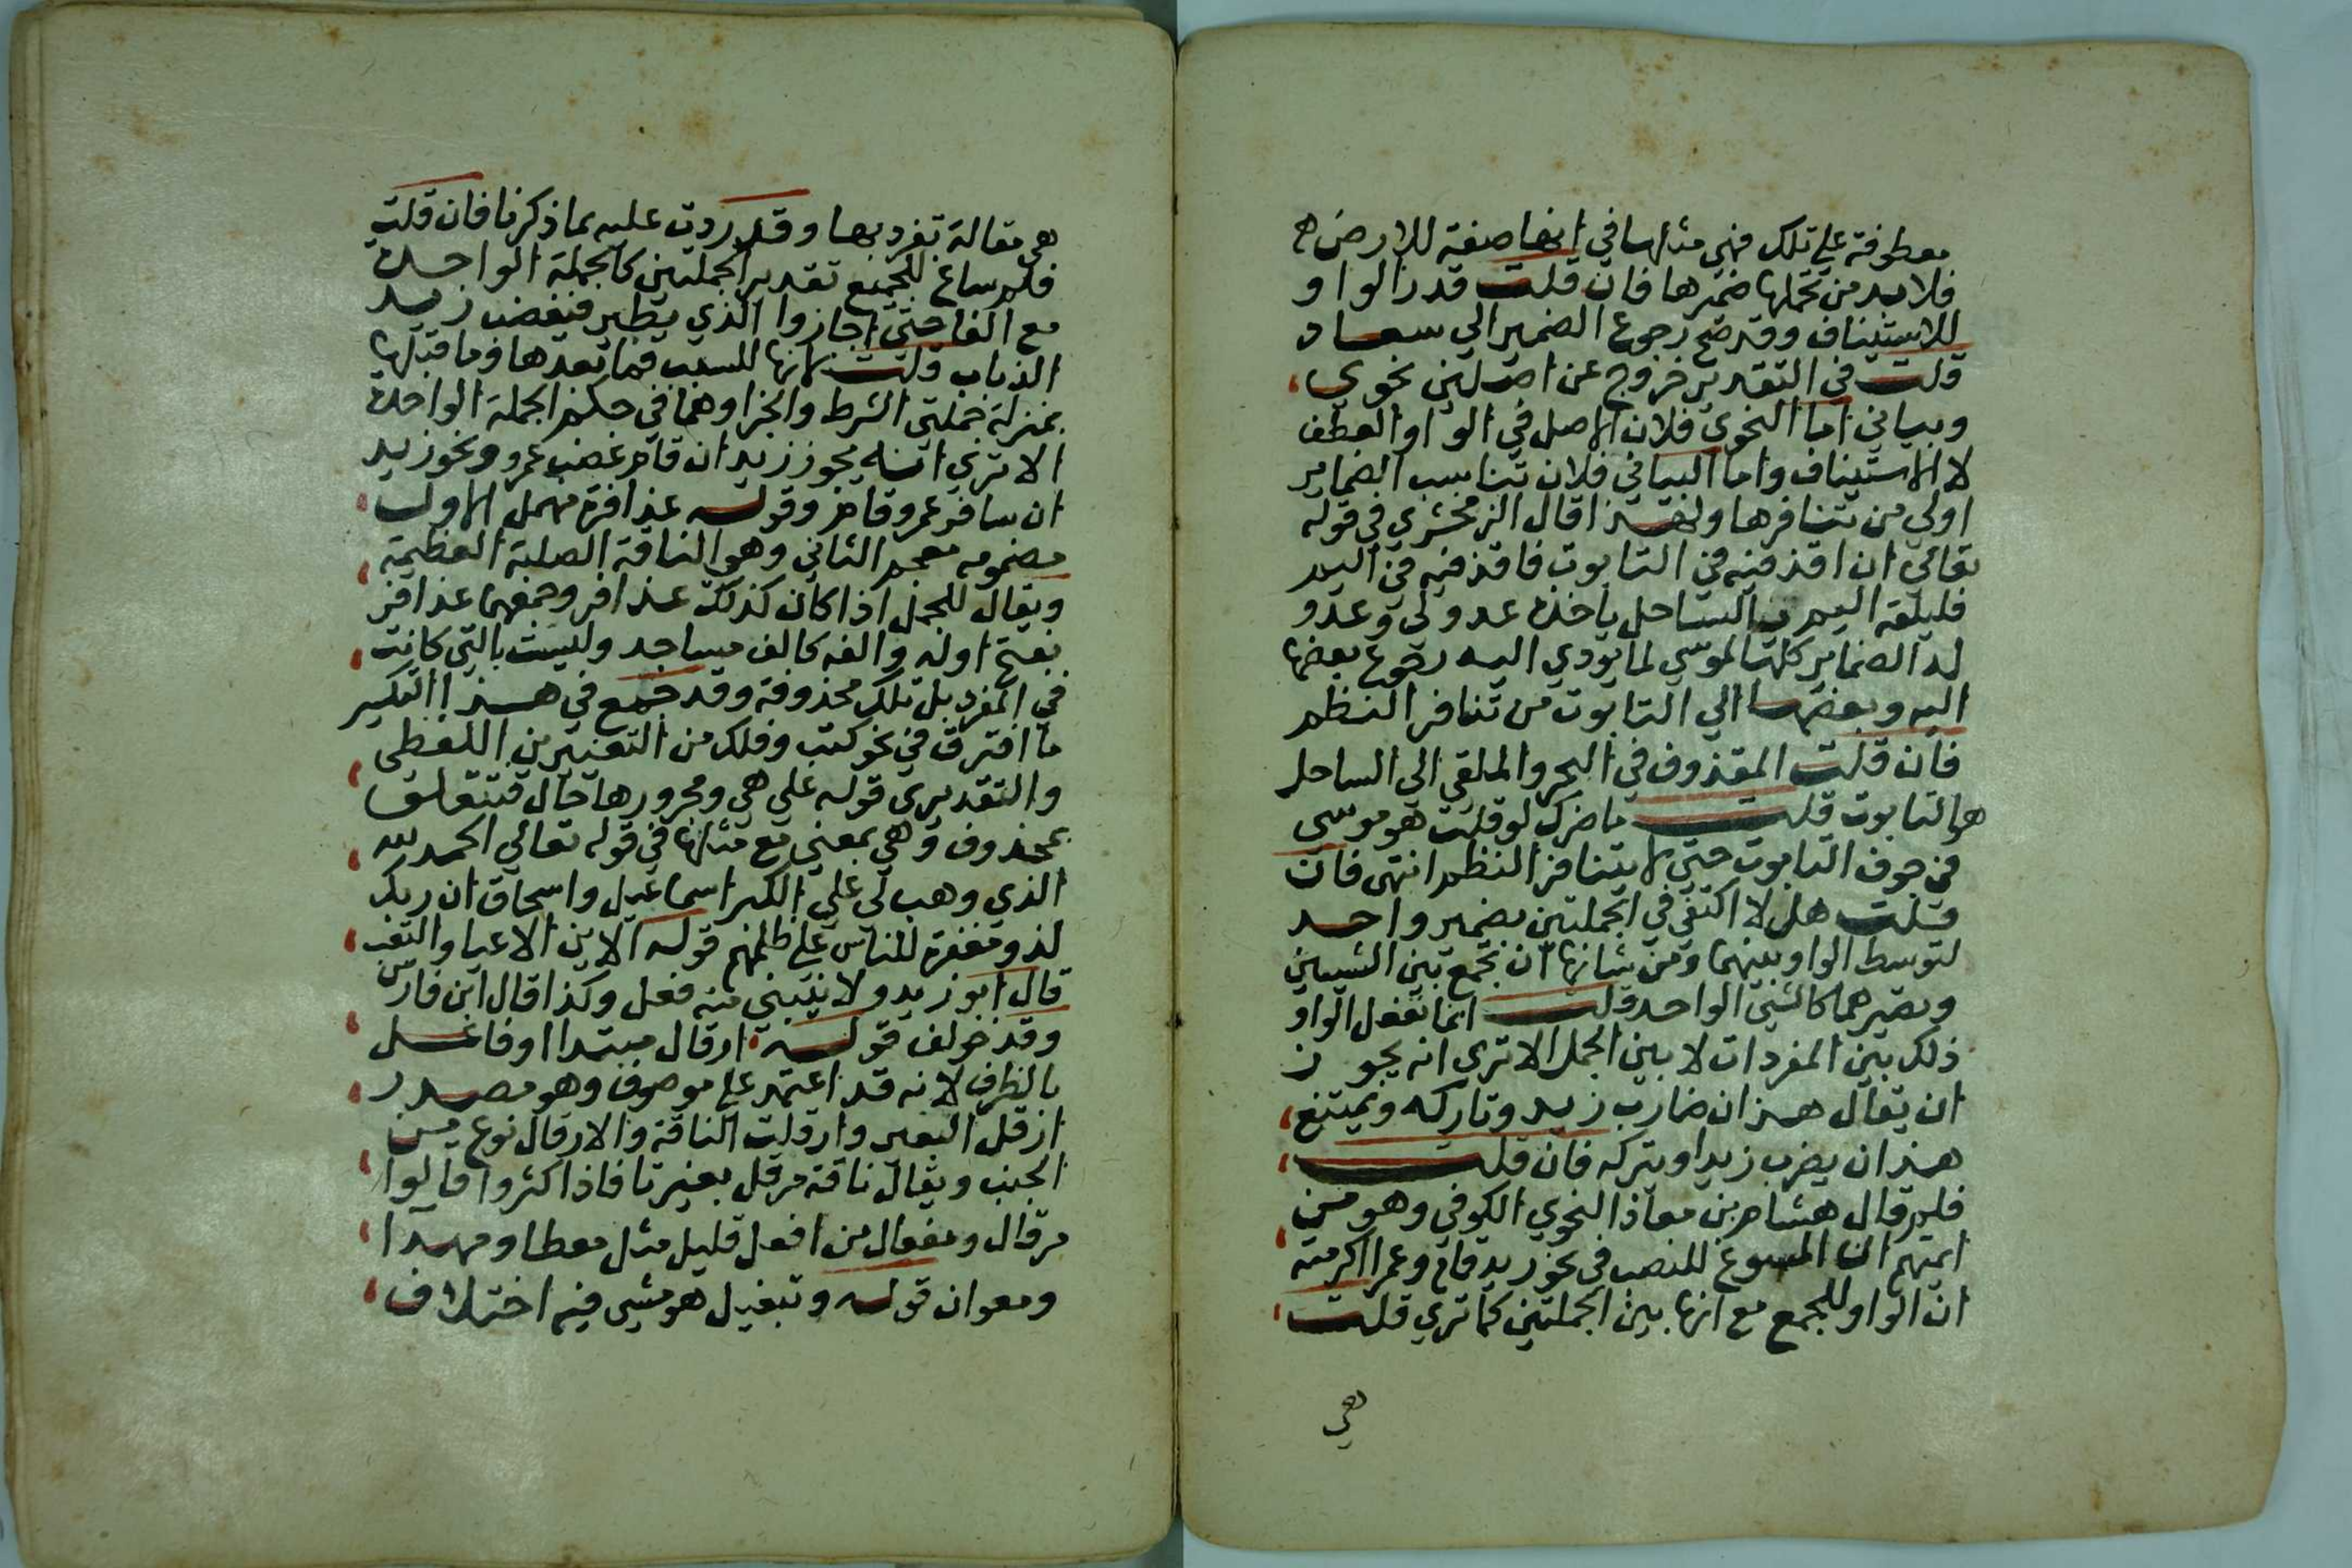 معطوفة على تلك فهي مثلها في انها صفة للارض
فلا بد من تحملها ضميرها فان قلت قدر الواو
للاستيناف وقد صح رجوع الضمير الي سعاد
قلت في التقدير خروج عن اصلين نحوي
وبياني اما النحوي فلان الاصل في الواو العطف
لا الاستيناف واما البياني فلان تناسب الضماير
اولي من تنافرها ولهذا قال الزمخشري في قوله
تعالي ان اقذفيه في التابوت فاقذفيه في اليم
فليلقه اليم بالساحل ياخذه عدو لي وعدو
له الضماير كلها لموسي لما يودي اليه رجوع بعضها
اليه وبعضها الي التابوت من تنافر النظم
فان قلت المقذوف في البحر والملقي الي الساحل
هو التابوت قلت ما ضرك لو قلت هو موسي
في جوف التابوت حتي لا يتنافر النظم انتهي فان
قلت هل لا اكتفي في الجملتين بضمير واحد
لتوسط الواو بينهما ومن شانها ان تجمع بين الشيين
وتصيرهما كالشي الواحد قلت انما تفعل الواو
ذلك بين المفردات لا بين الجمل الا تري انه يجوز
ان يقال هذان ضارب زيد وتاركه ويمتنع
هذان يضرب زيدا ويتركه فان قلت
فلم قال هشام بن معاذ النحوي الكوفي وهو من
ايمتهم ان المسوغ للنصب في نحو زيد قام وعمرا اكرمته
ان الواو للجمع مع انها بين الجملتين كما تري قلت
هي
هي مقالة تفرد بها وقد ردت عليه بما ذكرنا فان قلت
فلم ساغ للجميع تقدير الجملتين كالجملة الواحدة
مع الفا حتي اجازوا الذي يطير فيغضب زيد
الذباب قلت لانها للسبب فما بعدها وما قبلها
بمنزلة جملتي الشرط والجزا وهما في حكم الجملة الواحدة
الا تري انه يجوز زيد ان قام غضب عمرو ونحو زيد
ان سافر عمرو قام وقوله عذافرة مهمل الاول
مضمومه معجم الثاني وهو الناقة الصلبة العظيمة
ويقال للجمل اذا كان كذلك عذافر وجمعها عذافر
بفتح اوله والفه كالف مساجد وليست بالتي كانت
في المفرد بل تلك محذوفة وقد جمع في هذا التكسير
ما افترق في نحو كتب وفلك من التغييرين اللفظي
والتقديري قوله علي هي ومجرورها حال فيتعلق
بمحذوف وهي بمعني مع مثلها في قوله تعالي الحمد لله
الذي وهب لي علي الكبر اسماعيل واسحاق ان ربك
لذو مغفرة للناس على ظلمهم قوله الاين الاعيا والتعب
قال ابو زيد ولا يبني منه فعل وكذا قال ابن فارس
وقد خولف قوله ارقال مبتدا او فاعل
بالظرف لانه قد اعتمد على موصوف وهو مصدر
ارقل البعير وارقلت الناقة والارقال نوع من
الخبب ويقال ناقة مرقل بغير تا فاذا اكثروا قالوا
مرقال ومفعال من افعل قليل مثل معطا ومهدا
ومعوان قوله وتبغيل هو مشي فيه اختلاف